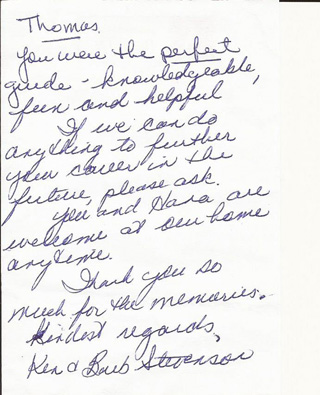 Thomas,
you were the perfect
guide - knowledgeable,
fun and helpful
If we can do
anything to further
your career in the
future, please ask.
you and Sara are
welcome at our home
anytime.
Thank you so
much for the memories.
Kindest regards,
Ken & Barb Stevenson